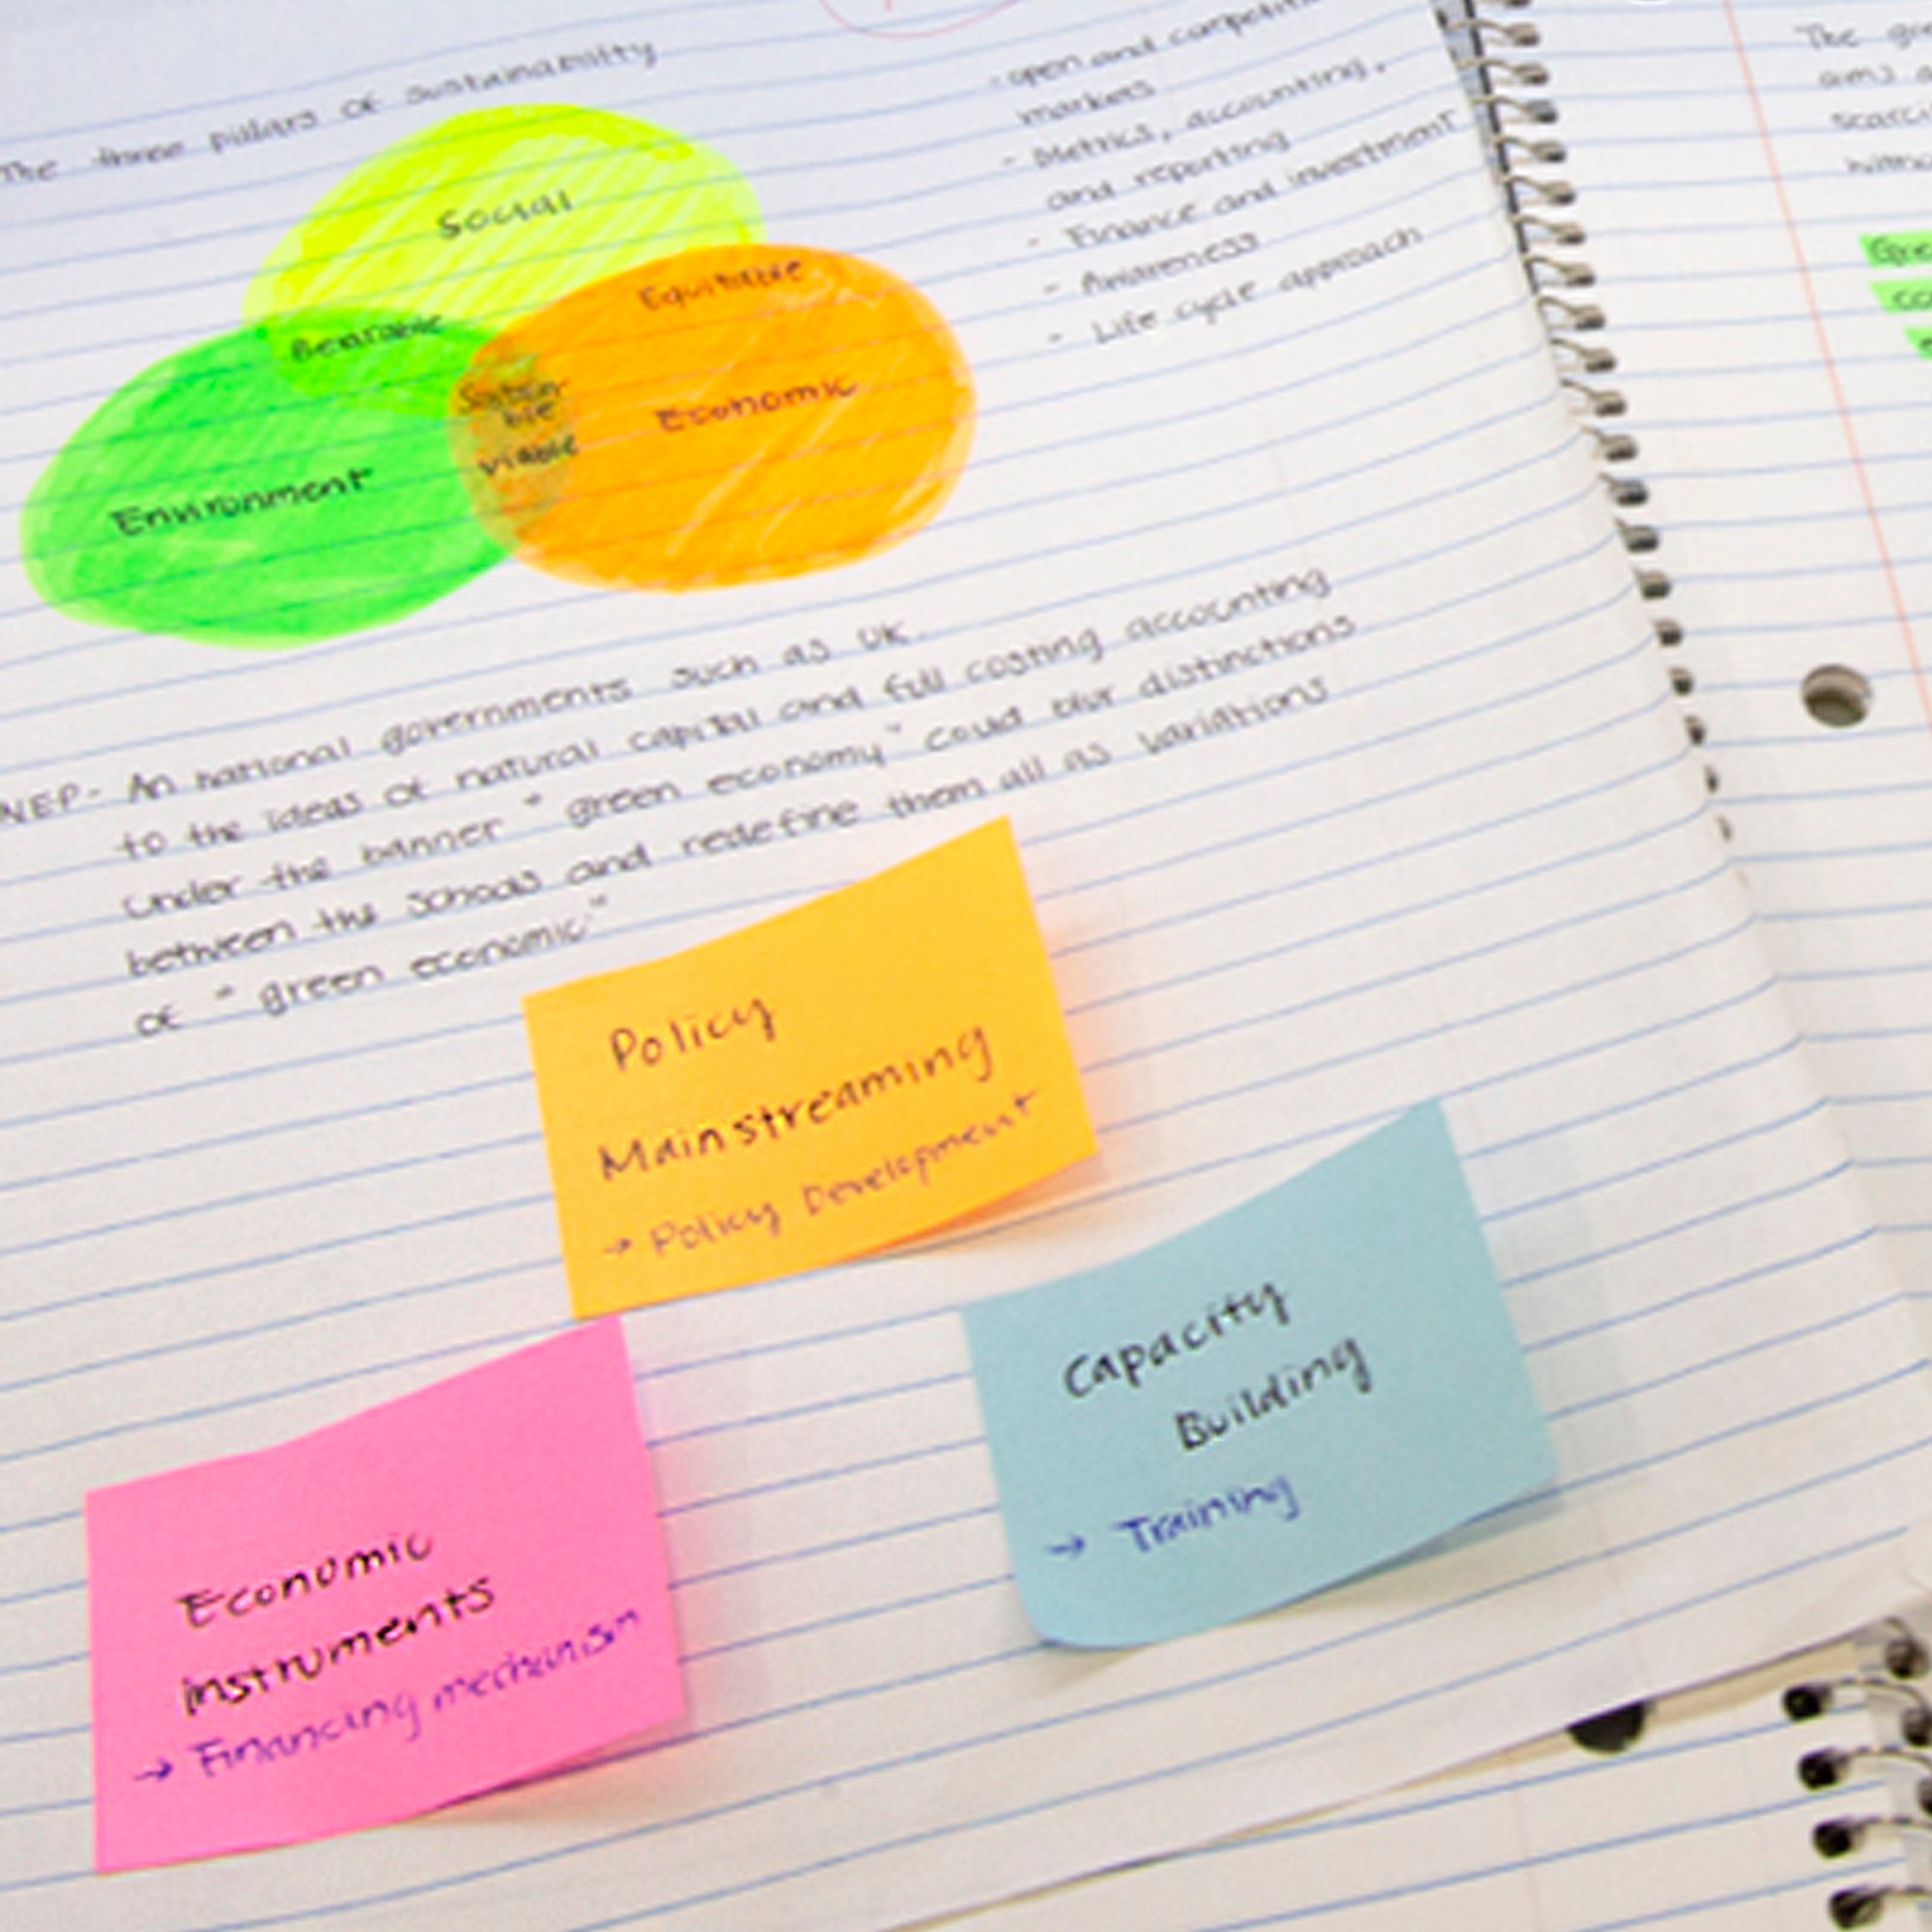 The three pillars of sustainability
Social
Equitable
Bearable
Economic
viable
Environment
- open and
markets
- Metrics, accounting,
and reporting
- Finance and investment
- Awareness
- Life cycle approach
NEP- An national governments such as UK.
to the ideas of natural capital and full costing accounting
under the banner " green economy" could blur distinctions
between the schools and redefine them all as variations
of " green economic."
Policy
Mainstreaming
→ Policy Development
Capacity
Building
→ Training
Economic
Instruments
→ Financing mechanism
The